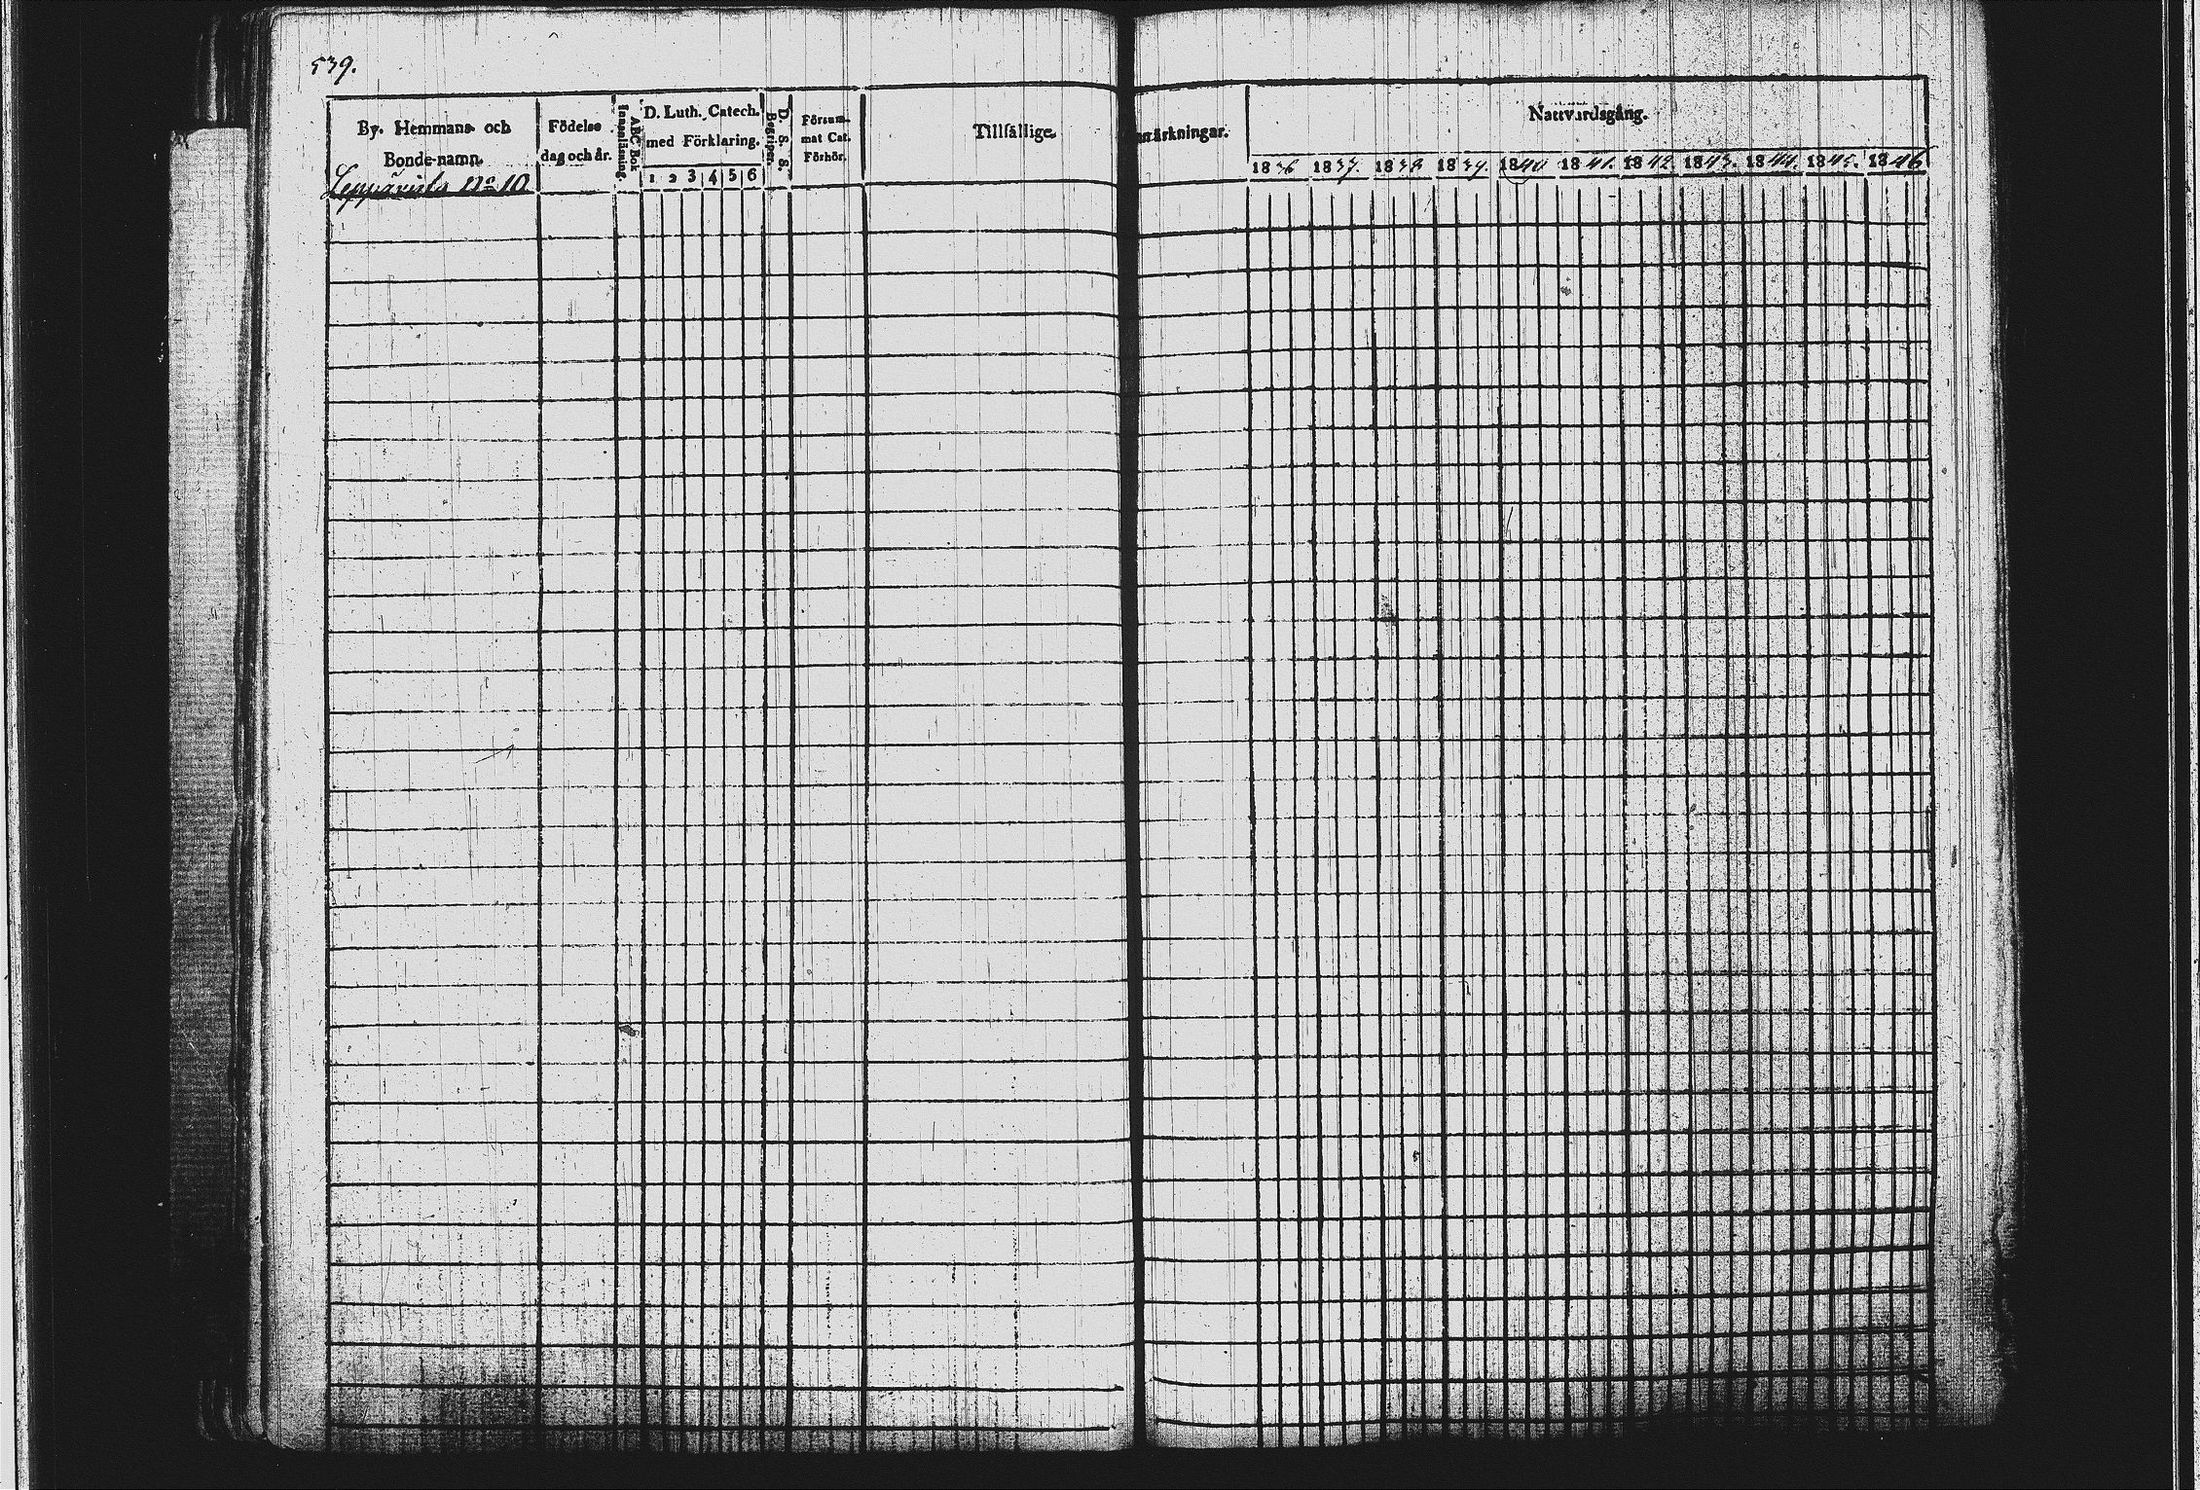 539.
By. Hemmans- och
Bonde-namn.
Födelse
dag och år.
ABC Bok
Innanläsning.
D. Luth. Catech.
med Förklaring.
1 2 3 4 5 6
D. S. S.
Begripen.
Försum-
mat Cat.
Förhör.
Tillfällige
märkningar.
Nattvardsgång.
1836 1837. 1838 1839. 1840 1841. 1842. 1843. 1844. 1845. 1846
No 10